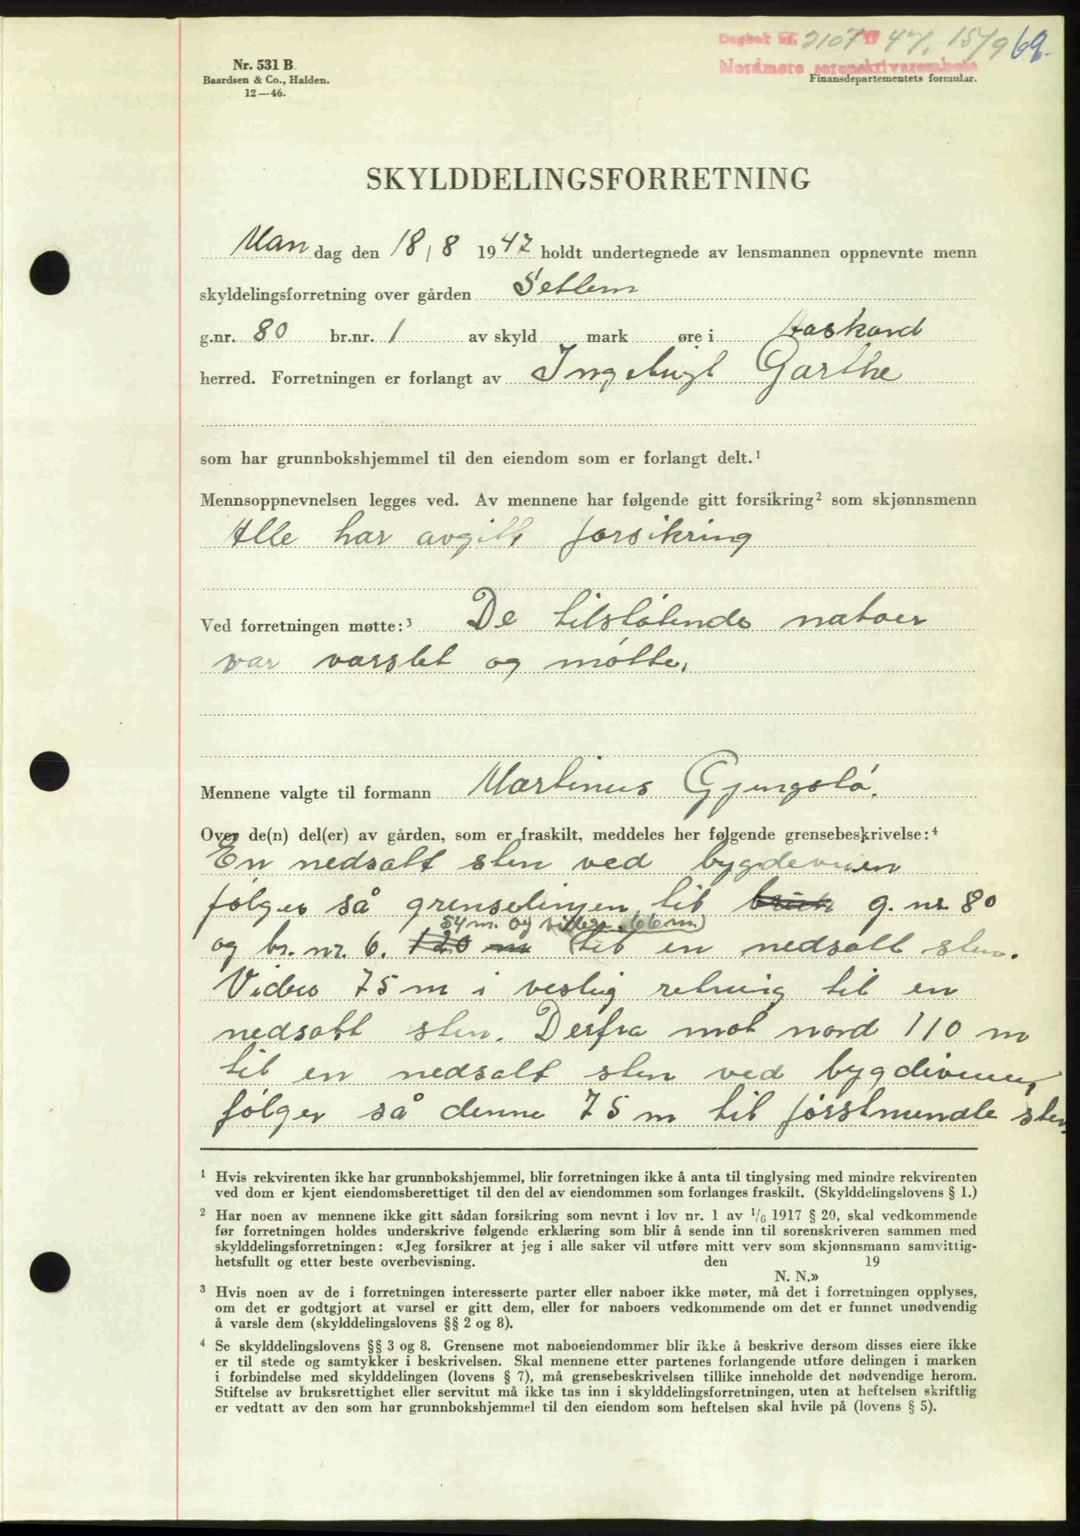 Dagbok nr. 2107 19 47. 15/9 69.
Nordmøre sorenskriverembete
Nr. 531 B.
Baardsen & Co., Halden.
12—46.
Finansdepartementets formular.
SKYLDDELINGSFORRETNING
Man dag den 18/8 1947 holdt undertegnede av lensmannen oppnevnte menn
skyldelingsforretning over gården Settem
g.nr. 80 br.nr. 1 av skyld mark øre i Aaskard
herred. Forretningen er forlangt av Ingebrigt Garthe
som har grunnbokshjemmel til den eiendom som er forlangt delt.¹
Mennsoppnevnelsen legges ved. Av mennene har følgende gitt forsikring² som skjønnsmenn
Alle har avgitt forsikring
Ved forretningen møtte:³ De tilstøtende naboer
var varslet og møtte.
Mennene valgte til formann Martinus Gjengstø.
Over de(n) del(er) av gården, som er fraskilt, meddeles her følgende grensebeskrivelse:⁴
En nedsatt sten ved bygdeveien
følger så grenselinjen til g. nr. 80
54 m. og videre 66 m)
og br. nr. 6. 120 m (til en nedsatt sten.
Videre 75 m i vestlig retning til en
nedsatt sten. Derfra mot nord 110 m
til en nedsatt sten ved bygdiveien,
følger så denne 75 m til førstnevnte sten
¹ Hvis rekvirenten ikke har grunnbokshjemmel, blir forretningen ikke å anta til tinglysing med mindre rekvirenten
ved dom er kjent eiendomsberettiget til den del av eiendommen som forlanges fraskilt. (Skylddelingslovens § 1.)
² Har noen av mennene ikke gitt sådan forsikring som nevnt i lov nr. 1 av 1/6 1917 § 20, skal vedkommende
før forretningen holdes underskrive følgende erklæring som blir å sende inn til sorenskriveren sammen med
skylddelingsforretningen: «Jeg forsikrer at jeg i alle saker vil utføre mitt verv som skjønnsmann samvittig-
hetsfullt og etter beste overbevisning. den 19
N. N.»
³ Hvis noen av de i forretningen interesserte parter eller naboer ikke møter, må det i forretningen opplyses,
om det er godtgjort at varsel er gitt dem, eller for naboers vedkommende om det er funnet unødvendig
å varsle dem (skylddelingslovens §§ 2 og 8).
⁴ Se skylddelingslovens §§ 3 og 8. Grensene mot naboeiendommer blir ikke å beskrive dersom disses eiere ikke
er til stede og samtykker i beskrivelsen. Skal mennene etter partenes forlangende utføre delingen i marken
i forbindelse med skylddelingen (lovens § 7), må grensebeskrivelsen tillike inneholde det nødvendige herom.
Stiftelse av bruksrettighet eller servitut må ikke tas inn i skylddelingsforretningen, uten at heftelsen skriftlig
er vedtatt av den som har grunnbokshjemmel til den eiendom som heftelsen skal hvile på (lovens § 5).